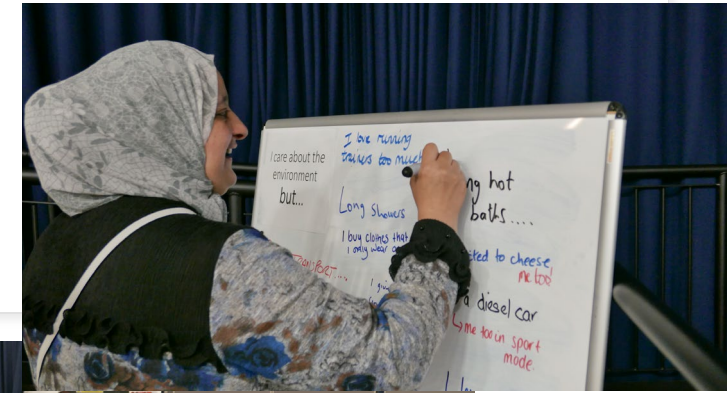 I care about the
environment
but...
I love running
trainers too much
Long Showers
I buy clothes that
I only wear
TRANSPORT....
hot
baths....
to cheese
me too!
a diesel car
me too in sport
mode.